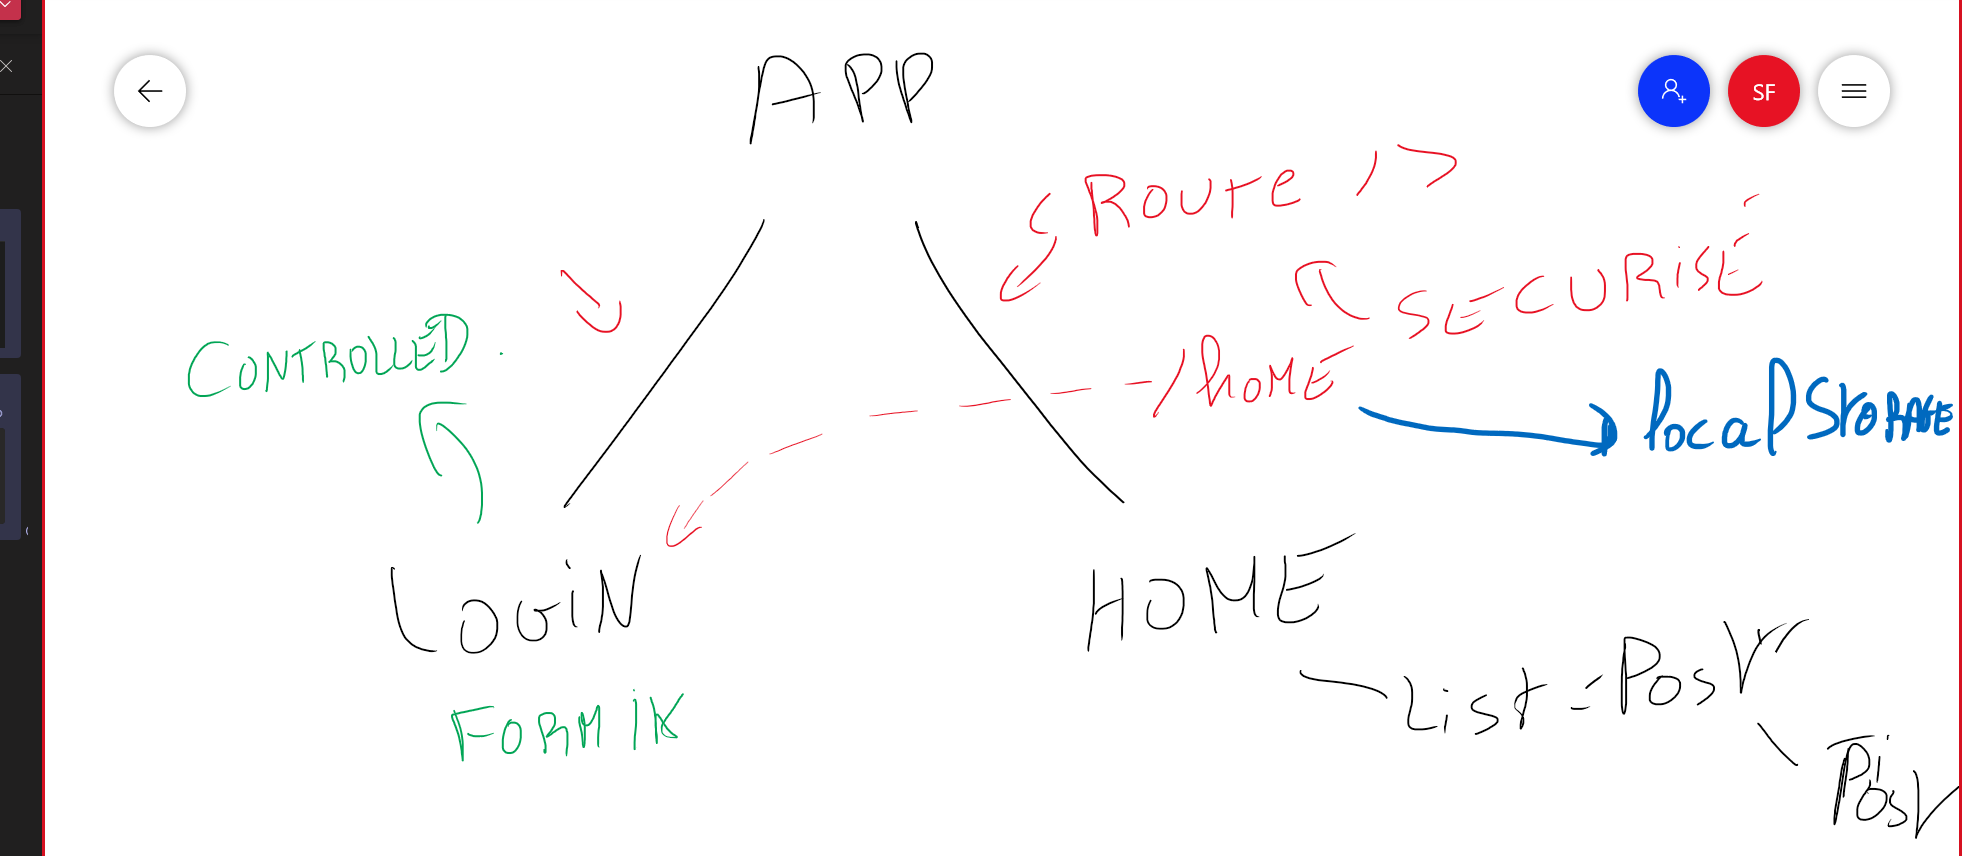 APP
SF
< ROUTE />
SECURISÉ
CONTROLLED.
/home
localStorage
LOGIN
HOME
FORMIK
List-Post
Post